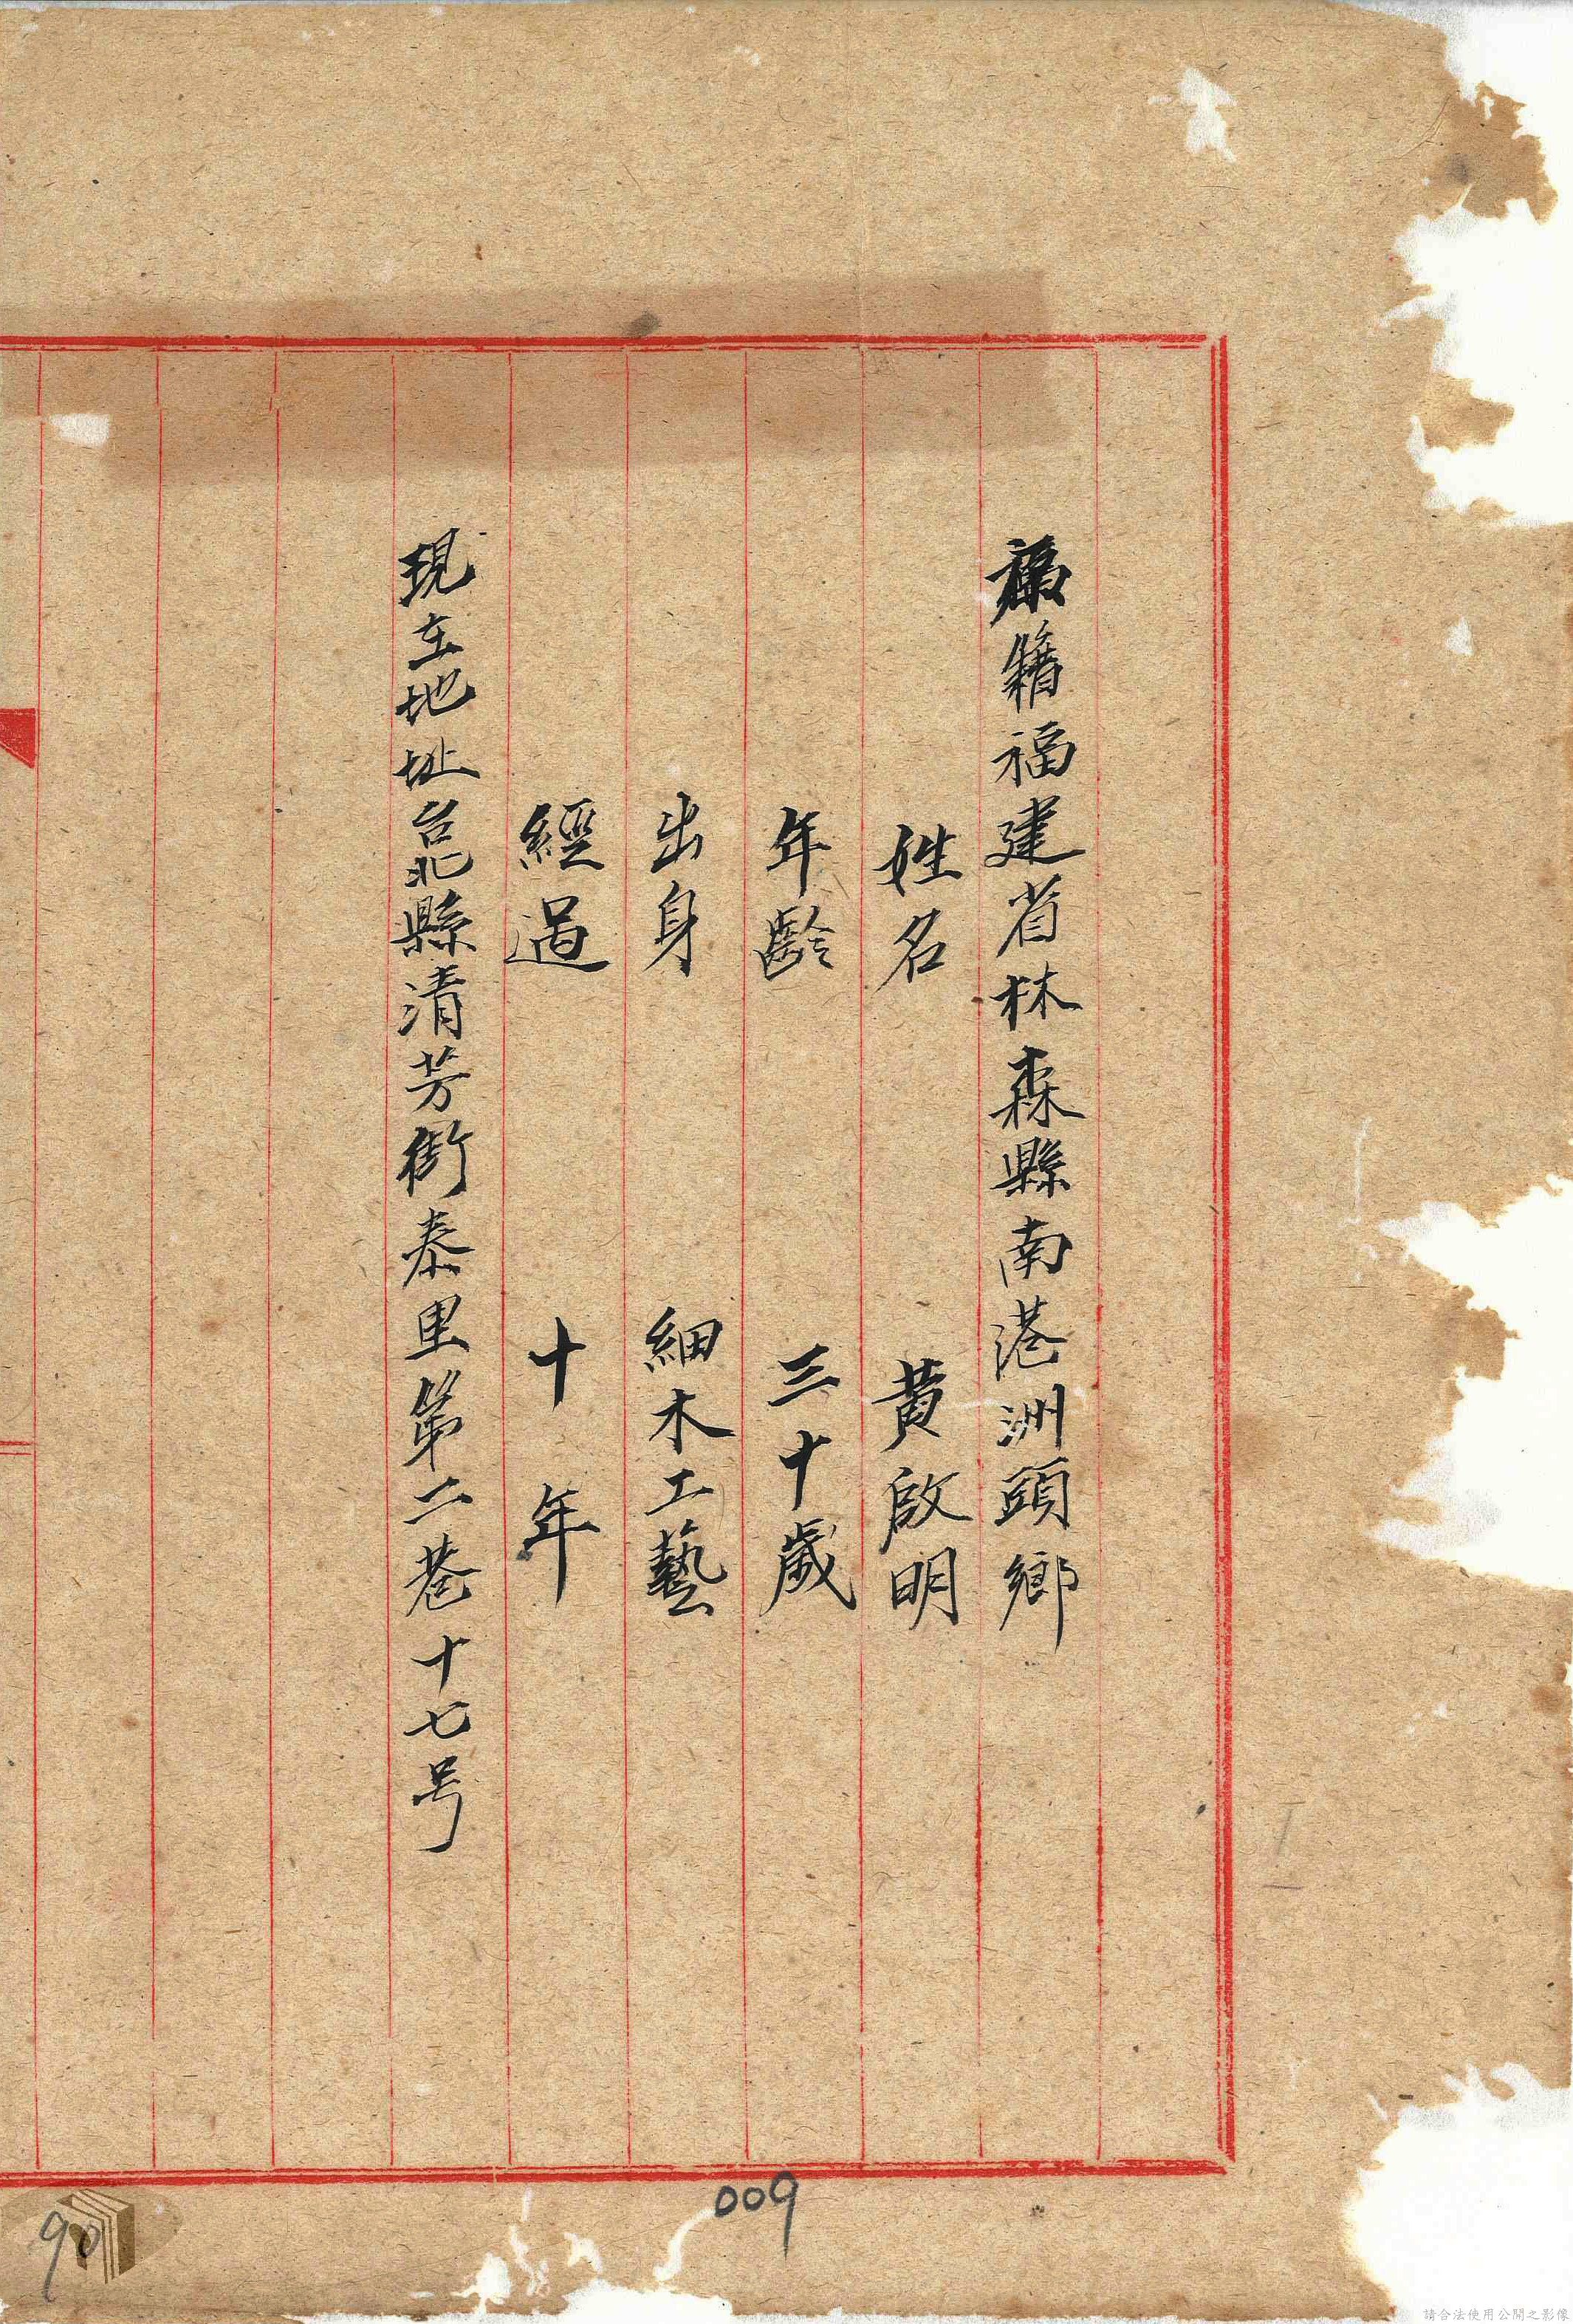 原籍福建省林森縣南港洲頭鄉
姓名 黃啟明
年齡 三十歲
出身 細木工藝
經過 十年
現在地址台北縣清芳街泰里第二巷十七号
009
90
請合法使用公開之影像